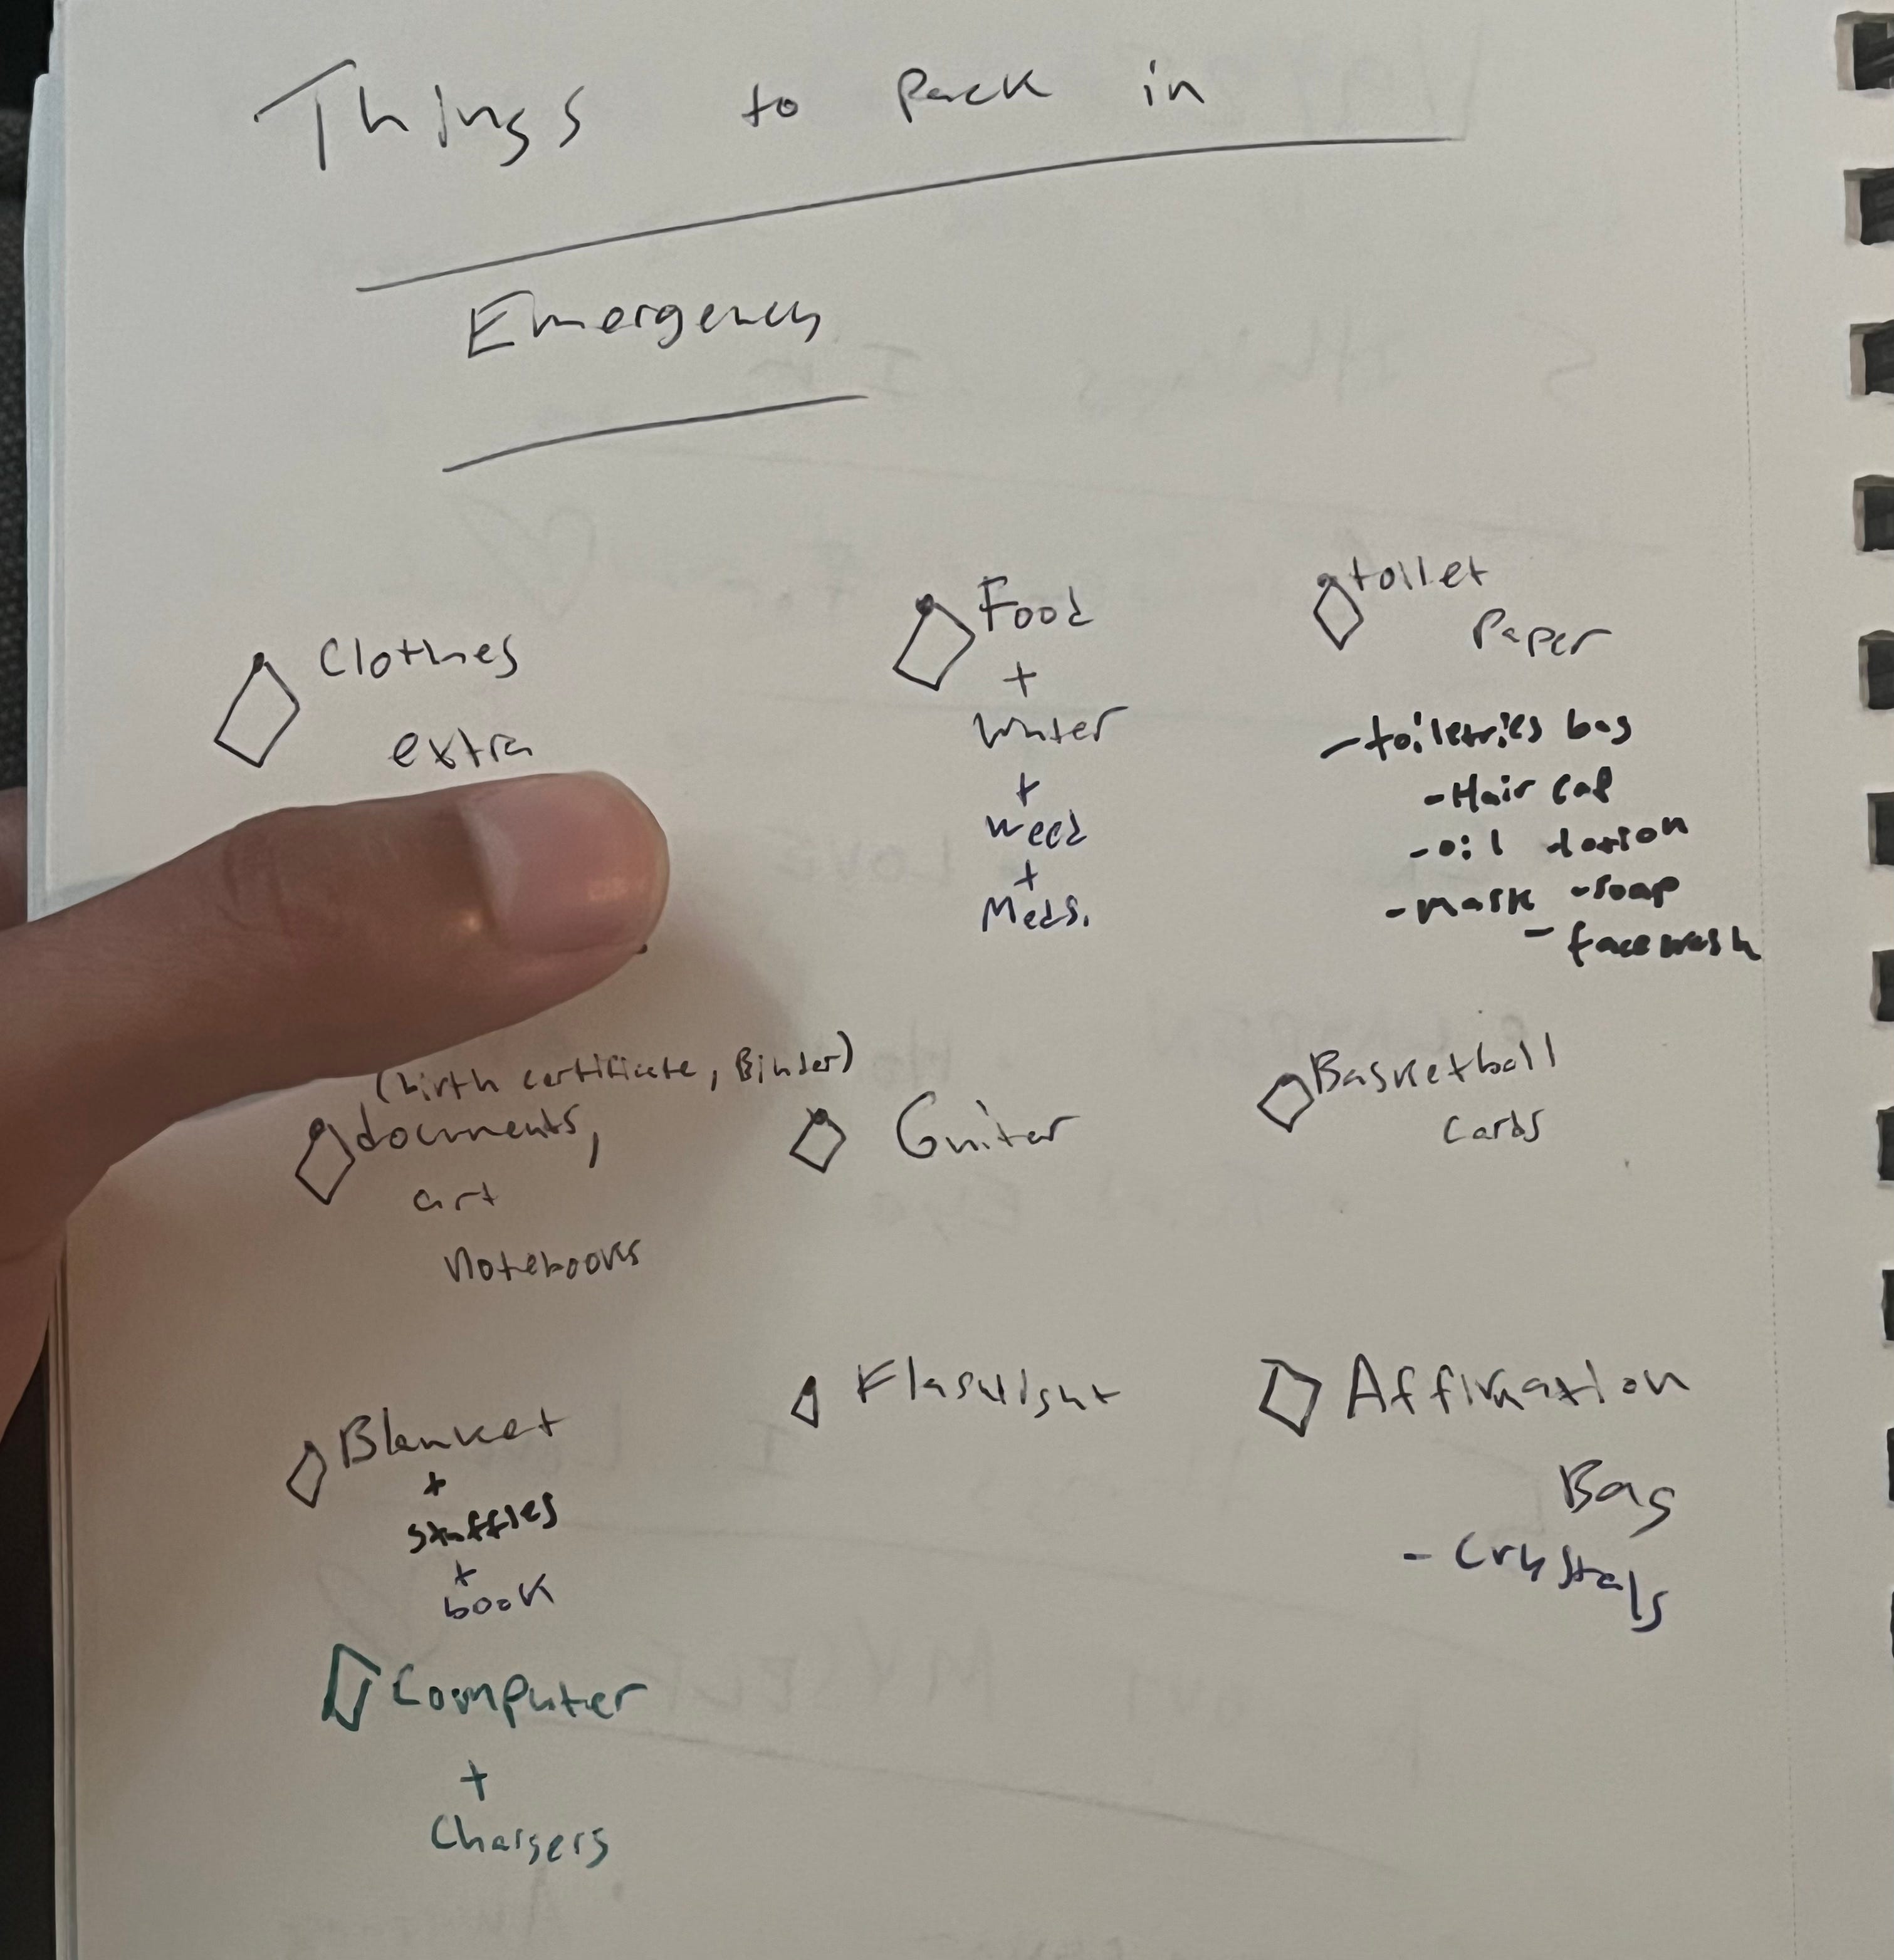 Things to Pack in
Emergency
Clothes
extra
Food
+
Water
+
weed
+
Meds.
toilet
Paper
- toiletries bag
- Hair cap
- oil - lotion
- mask - soap
- face wash
(birth certificate, Binder)
documents,
art
notebooks
Guitar
Basketball
cards
Blanket
+
stuffies
+
book
Flashlight
Affirmation
Bag
- Crystals
Computer
+
Chargers